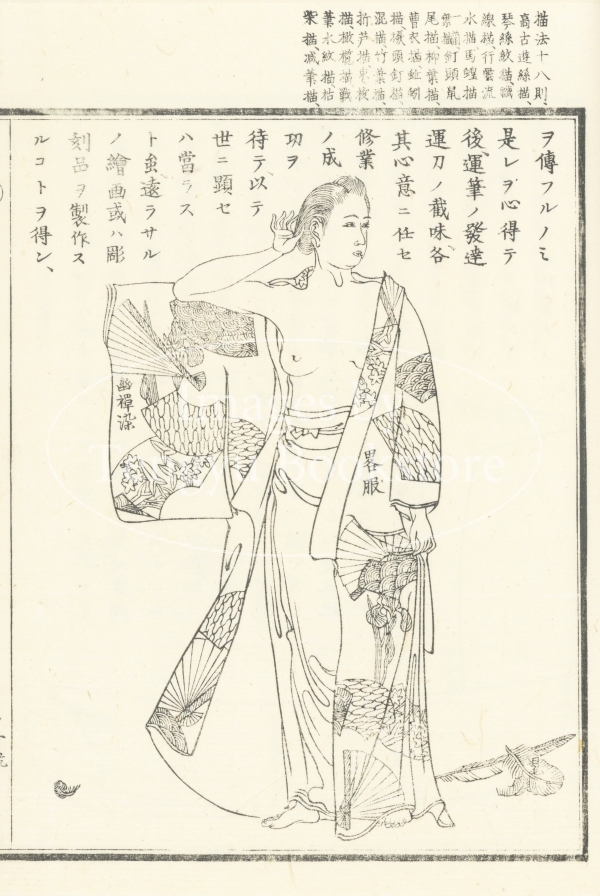 描法十八則、
高古遊絲描、
琴絲紋描、鐵
線描、行雲流
水描、馬蝗描
釘頭鼠
尾描、柳葉描、
曹衣描、蚯蚓
描、橛頭釘描、
混描、竹葉描、
折芦描、棗核
描、橄欖描、戰
筆水紋描、枯
柴描、減筆描、
ヲ傳フルノミ
是レヲ心得テ
後、運筆ノ發達
運刀ノ截味、各
其心意ニ任セ
修業
ノ成
功ヲ
待テ、以テ
世ニ顕セ
ハ當ラス
ト虽遠ラサル
ノ繪画或ハ彫
刻品ヲ製作ス
ルコトヲ得ン、
幽禪染
畧服
Images by
Bookstore